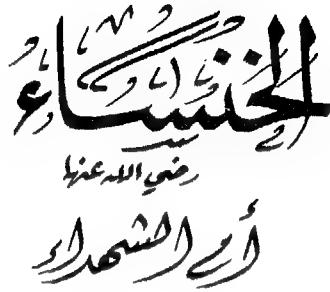 الخنساء
رضي الله عنها
أم الشهداء